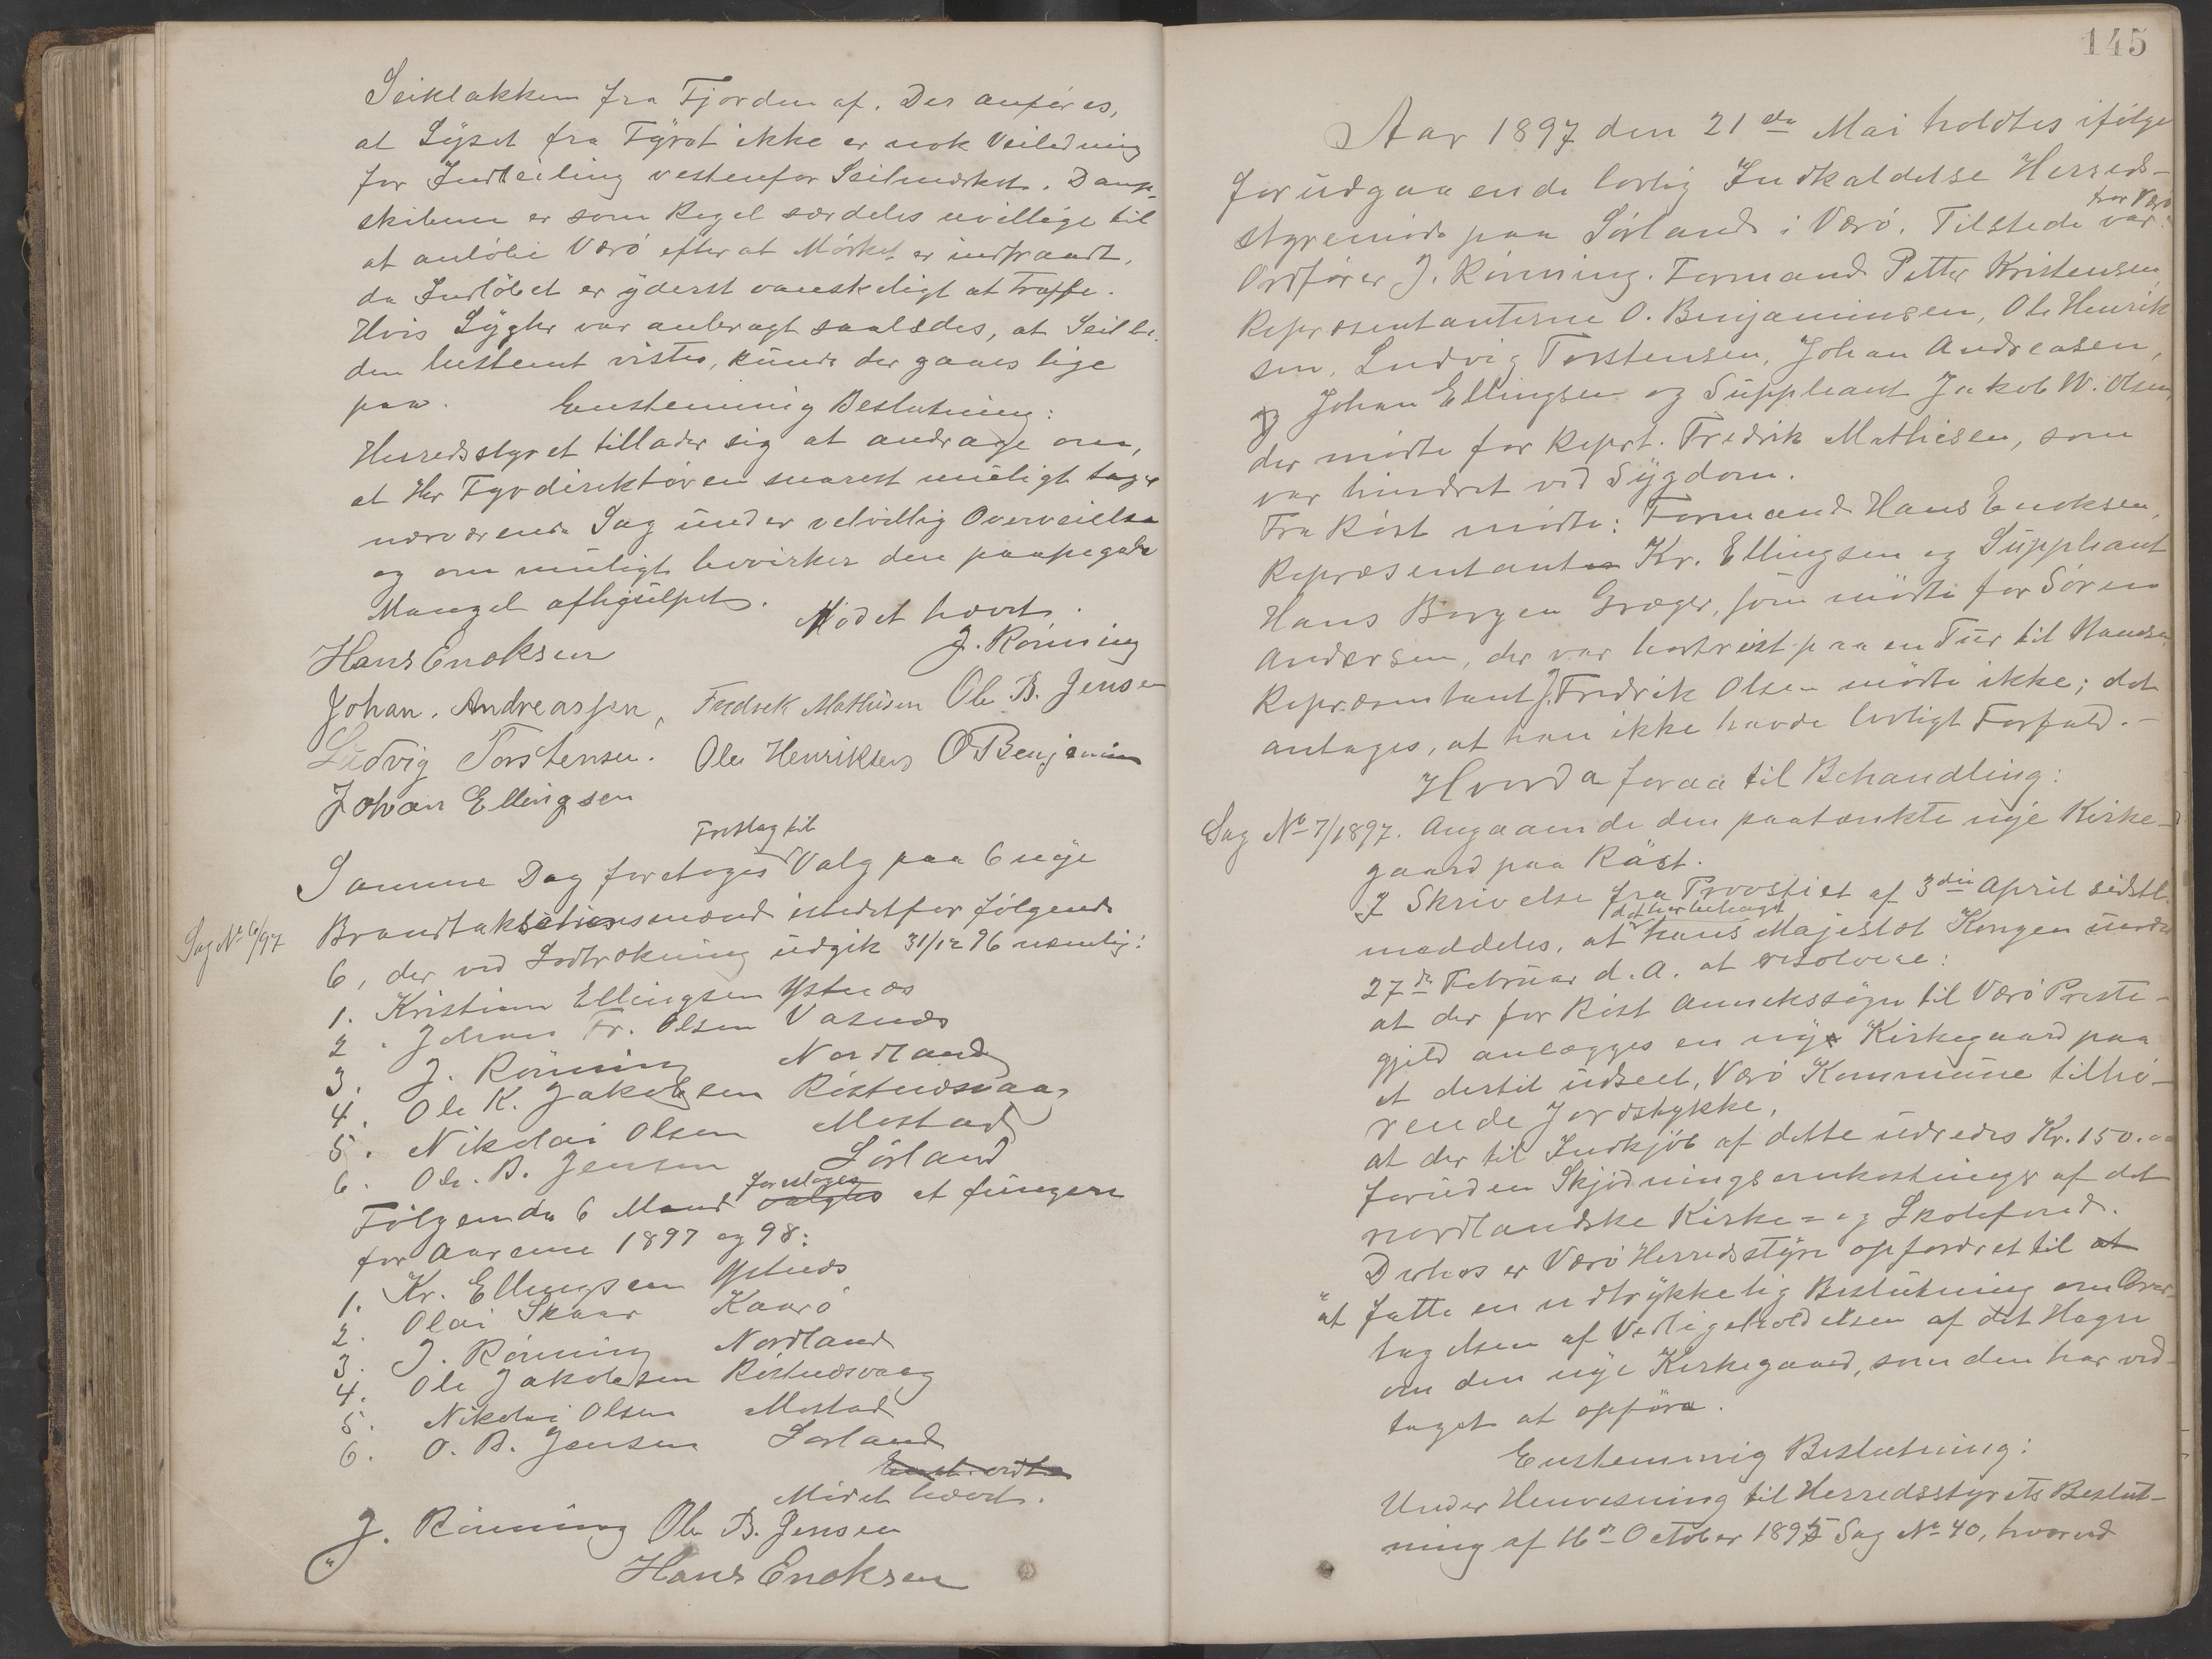 Seiklakken fra Fjorden af. Der anføres,
at Lyset fra Fyret ikke er nok Veiledning
for Indseiling vestenfor Seilmærket. Damp-
skibene er som Regel særdeles uvillige til
at anløbe Værø efter at Mørket er indtraadt,
da Indløbet er yderst vanskeligt at træffe.
Hvis Lygter var anbragt saaledes, at Seille-
den bestemt vistes, kunde der gaaes lige
paa. Enstemmig Beslutning:
Herredsstyret tillader sig at andrage om,
at Hr Fyrdirektøren snarest muligt tager
nærværende Sag under velvillig Overveielse
og om muligt bevirker den paapegede
Mangel afhjulpet. Mødet hævet.
Hans Enoksen J. Rønning
Johan. Andreassen, Fredrek Mathisen Ole B. Jensen
Ludvig Torstensen. Ole Henriksen O Benjamin
Johan Ellingsen
Forslag til
Samme Dag foretoges Valg paa 6 nye
Sag No 6/97 Brandtakstionsmænd istedetfor følgende
6, der ved Lodtrækning udgik 31/12 96 nemlig:
1. Kristian Ellingsen Ystnes
2. Johan Fr. Olsen Vasnes
3. J. Rønning Nordland
4. Ole K. Jakobsen Røstnesvaag
5. Nikolai Olsen Mostad
6. Ole. B. Jensen Sørland
foresloges
Følgende 6 Mand valgtes at fungere
for Aarene 1897 og 98:
1. Kr. Ellingsen Ystnes
2. Olai Skaar Kaarø
3. J. Rønning Nordland
4. Ole Jakobsen Røstnesvaag
5. Nikolai Olsen Mostad
6. O. B. Jensen Sørland
Mødet hævet.
J. Rønning Ole B. Jensen
Hans Enoksen
145
Aar 1897 den 21de Mai holdtes ifølge
forudgaaende lovlig Indkaldelse Herreds-
fra Værø
styremøde paa Sørland i Værø. Tilstede var:
Ordfører J. Rønning. Formand Petter Kristensen,
Repræsentanterne O. Benjaminsen, Ole Henrik
sen, Ludvig Torstensen, Johan Andreasen,
og Johan Ellingsen og Suppleant Jakob W. Olsen,
der mødte for Reprt. Fredrik Mathiesen, som
var hindret ved Sygdom.
Fra Røst mødte: Formand Hans Enoksen,
Repræsentant Kr. Ellingsen og Suppleant
Hans Borgen Greger, som mødte for Søren
Andersen, der var bortreist paa en Tur til Namsen.
Repræsentant J. Fredrik Olsen mødte ikke; det
antages, at han ikke havde lovligt Forfald.-
Hvorda foraa til Behandling:
Sag No 7/1897. Angaaende den paatænkte nye Kirke-
gaard paa Røst.
I Skrivelse fra Provstiet af 3die April sidstl.
det har behaget
meddeles, at hans Majestæt Kongen under
27de Februar d. A. at resolvere:
at der for Røst Annekssogn til Værø Preste-
gjeld anlægges en ny Kirkegaard paa
et dertil udseet, Værø Kommune tilhø-
rende Jordstykke,
at der til Indkjøb af dette udredes Kr. 150.00
foruden Skjødningsomkostninger af det
nordlandske Kirke- og Skolefond.
Derhos er Værø Herredsstyre opfordret til at
at fatte en udtrykkelig Beslutning om Over-
tagelsen af Vedligeholdelsen af det Hegn
om den nye Kirkegaard, som den har ved-
taget at opføre.
Enstemmig Beslutning:
Under Henvisning til Herredsstyrets Beslut-
ning af 16de October 1895 Sag No 40, hvorved